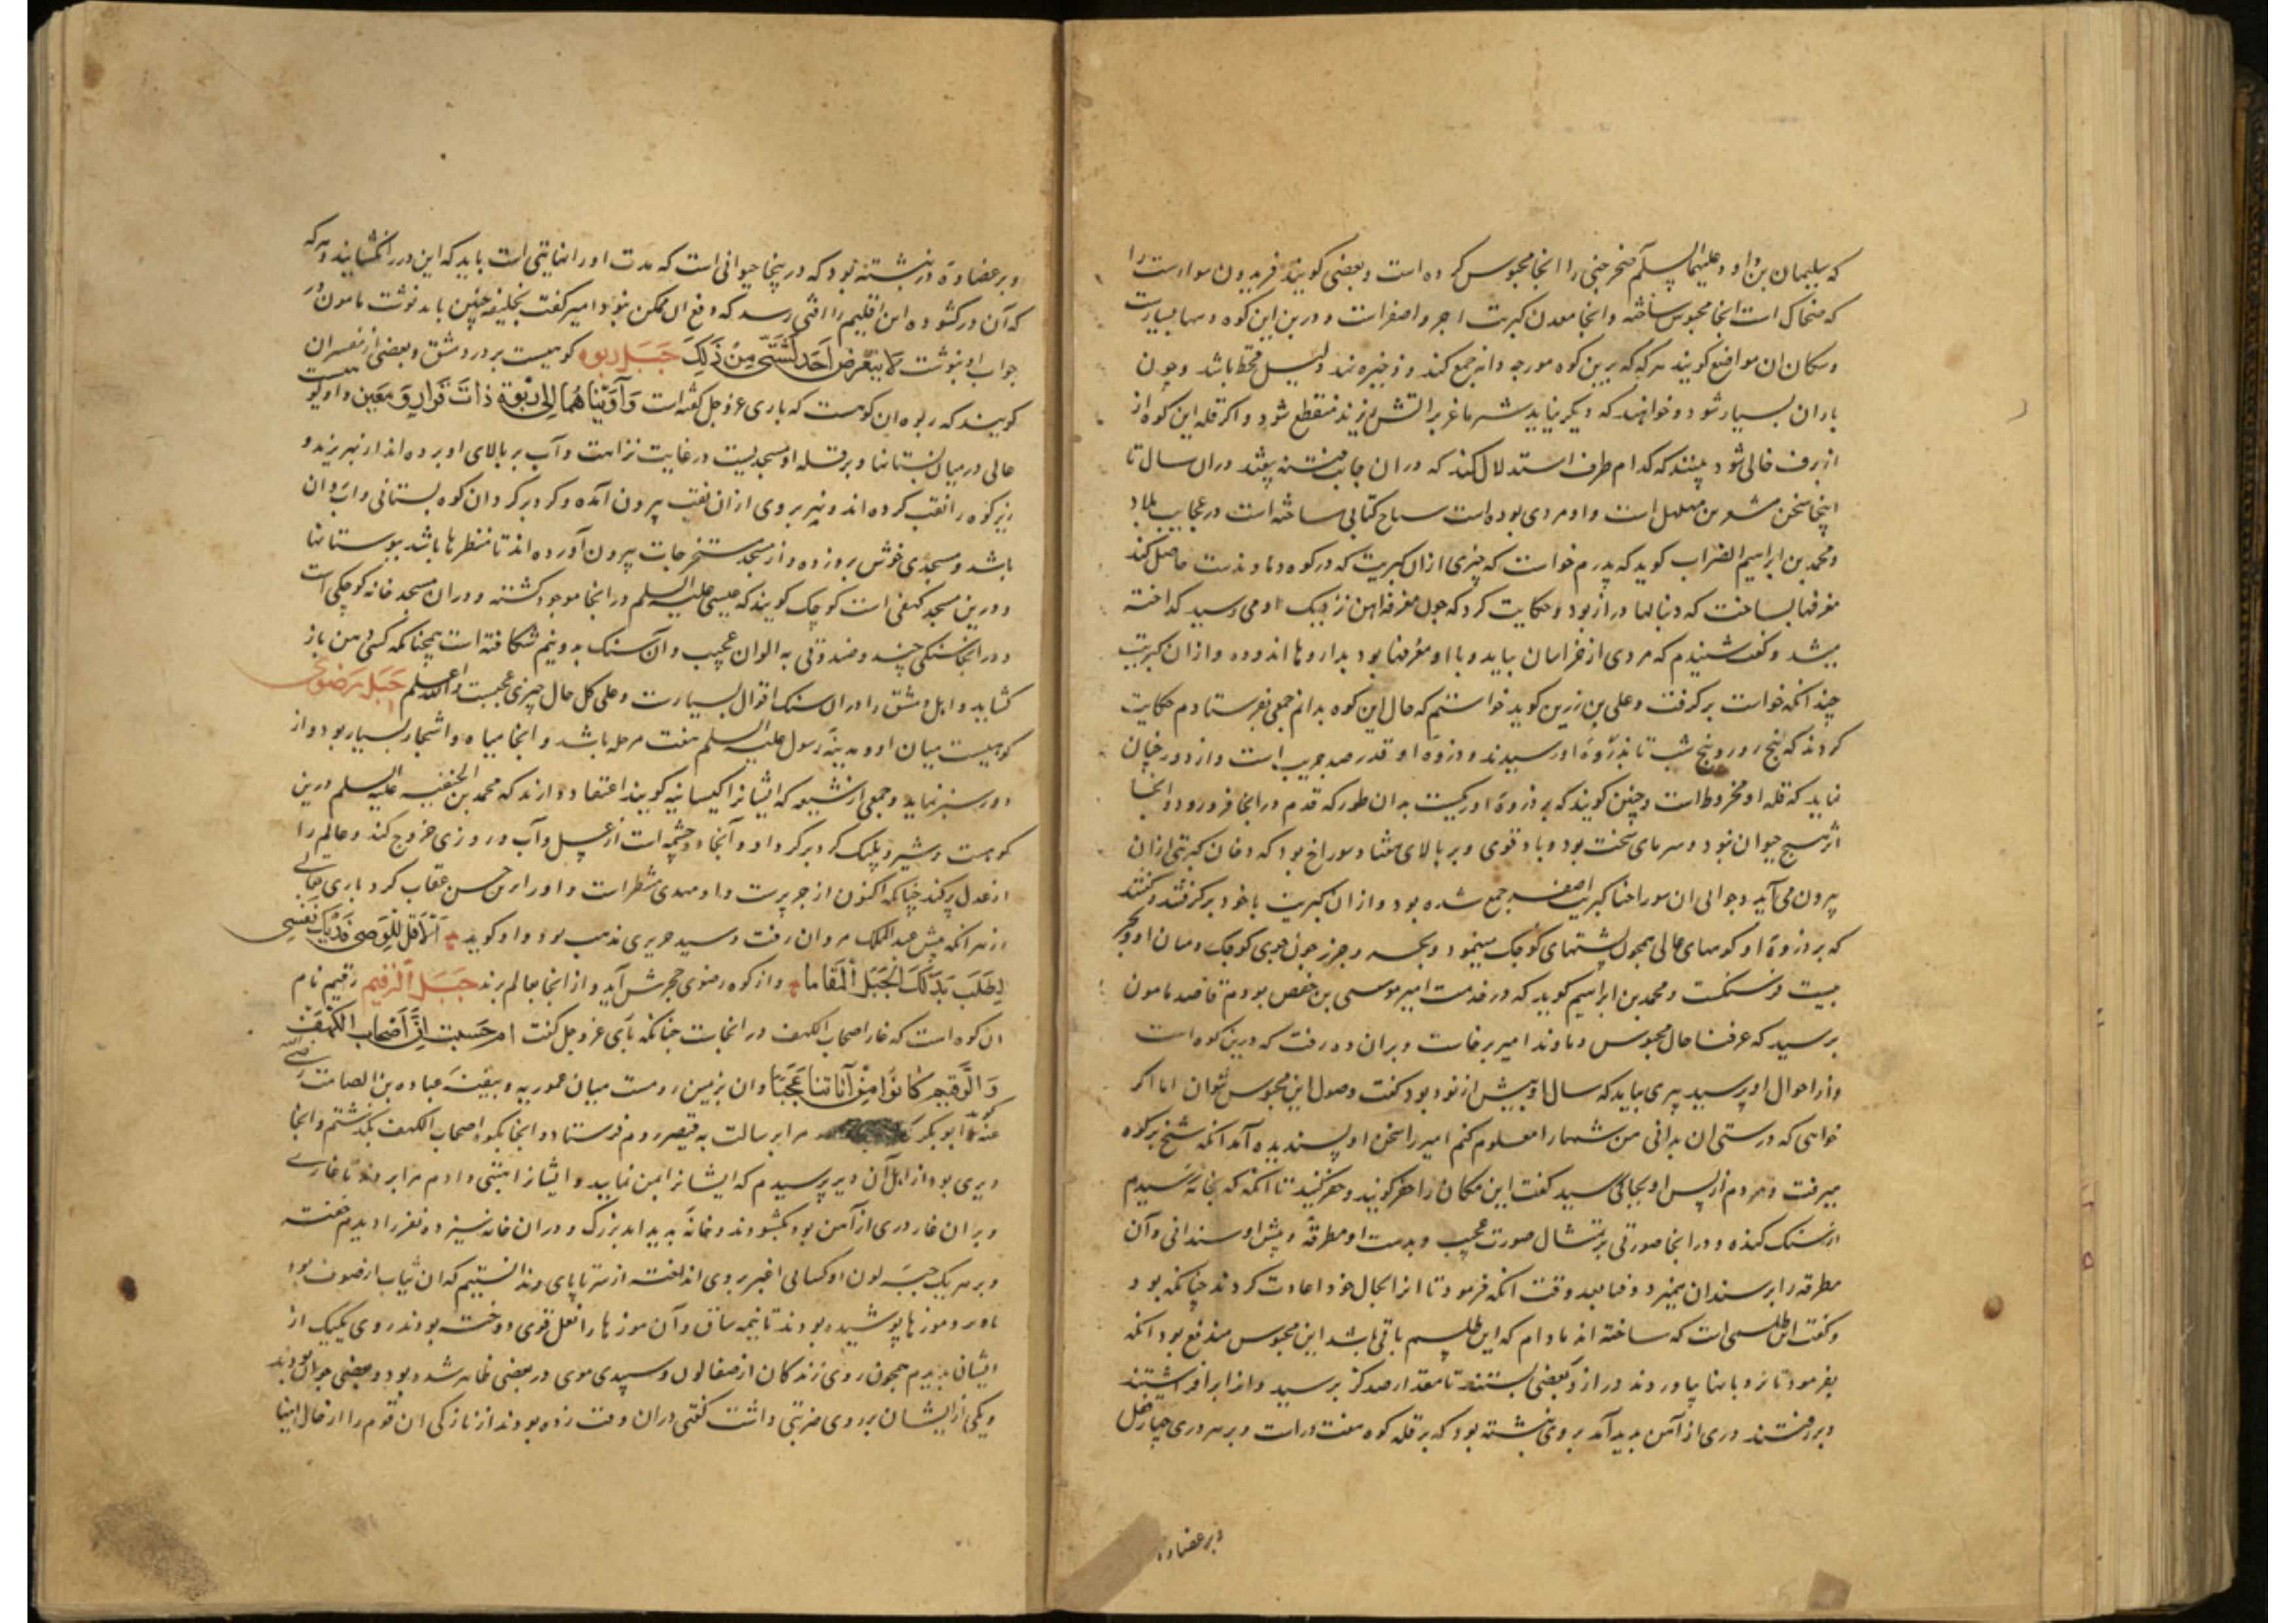 که سلیمان بن داود علیهما السلم صخر جنی را انجا محبوس کرده است و بعضی کویند فریدون سوارست را
که ضحاک است انجا محبوس ساخته و انجا معدن کبریت احمر و اصفر است و درین این کوه دمها بسیارست
و سکان ان مواضع کویند هرکه که برین کوه مورچه دانه جمع کند و ذخیره نهد دلیل قحط باشد و چون
باران بسیار شود و خواهند که دیکر نیاید شیر ماغز بر اتش ریزند منقطع شود و اکر قله این کوه از
از برف خالی شود بینند که کدام طرف استدلال کند که دران جانب فتنه بیفتد دران سال تا
اینجا سخن مشعر بن مهلهل است و او مردی بوده است سیاح کتابی ساخته است در عجایب بلاد
و محمد بن ابراهیم الضراب کوید که پدرم خواست که چیزی ازان کبریت که در کوه دماوندست حاصل کند
مغرفها بساخت که دنبالها دراز بود و حکایت کرد که چون مغرفه اهن نزدیک او می رسید کداخته
میشد و کفت شنیدم که مردی از خراسان بیاید و با او مغرفها بود بداروها اندوده و ازان کبریت
چندانکه خواست برکرفت و علی بن زرین کوید خواستم که حال این کوه بدانم جمعی بفرستادم حکایت
کردند که پنج روز و پنج شب تا بذروۀ او رسیدند و ذروه او قدر صد جریب است و از دور چنان
نماید که قله او مخروط است و چنین کویند که بر ذروۀ او ریکیست بدان طور که قدم در انجا فرو رود و انجا
اثر هیچ حیوان نبود و سرمای سخت بود و باد قوی و بر بالای هفتاد سوراخ بود که دخان کبریتی ازان
بیرون می آید و حوالی ان سوراخها کبریت اصفر جمع شده بود و ازان کبریت باخود برکرفتند و کفتند
که بر ذروۀ او کوههای عالی همچون پشتهای کوچک مینمود و بحر خزر چون جوی کوچک و میان او و بحر
بیست فرسنکست و محمد بن ابراهیم کوید که در خدمت امیر موسی بن حفص بودم قاصد مامون
برسید که عرفنا حال محبوس دماوند امیر برخاست و بران ده رفت که درین کوه است
و از احوال او پرسید پیری بیاید که سال او بیش از نود بود کفت وصول این محبوس نتوان اما اکر
خواهی که درستی ان بدانی من شما را معلوم کنم امیر را سخن او پسندیده آمد انکه شیخ بر کوه
میرفت و مردم از پس او بجایکی رسید کفت این مکان را حفر کنید و حفر کنید تا انکه که بخانه رسیدم
از سنک کنده و در انجا صورتی بر تمثال صورت عجیب و بدست او مطرقۀ و پیش او سندانی و آن
مطرقه را بر سندان میزد وقتا بعد وقت انکه فرمود تا انرا بحال خود اعادت کردند چنانکه بود
و کفت این طلسمی است که ساخته اند مادام که این طلسم باقی باشد این محبوس مندفع بود انکه
بفرمود تا نردبانها بیاوردند دراز و بعضی بستند تا مقدار صد کز برسید و انرا برافراشتند
و بررفتند دری از آهن بدید آمد بر وی نبشته بود که بر قله کوه هفت درست و بر هر دری چهار قفل
و بر عضاده
و بر عضادۀ در نبشته بود که درینجا حیوانی است که مدت او را نهایتی است باید که این در را نکشایند و هرکه
که آن در کشوده این اقلیم را افتی رسد که دفع ان ممکن نبود امیر کفت بخلیفه چنین باید نوشت مامون در
جواب او بنوشت لا یتعرض احد لشئ من ذلک جبل ربوه کوهیست بر در دمشق و بعضی از مفسران
کویند که ربوه ان کوهست که باری عز و جل کفته است وآویناهما الی ربوة ذات قرار و معین و او کوهیست
عالی در میان بستانها و بر قله او مسجدیست در غایت نزاهت و آب بر بالای او برده اند از نهر یزید و
زیر کوه را نقب کرده اند و نهر بروی ازان نقب بیرون آمده و کرد برکرد ان کوه بستانی و اب روان
باشد و مسجدی خوش بر وزده و از مسجد مستخرجات بیرون آورده اند تا منظرها باشد ببوستانها
و درین مسجد کهفی است کوچک کویند که عیسی علیه السلم در انجا موجود کشته و دران مسجد خانه کوچکی است
و در انجا سنکی چند و صندوقی به الوان عجیب و آن سنک بدو نیم شکافته است همچنانکه کسی دهن باز
کشاید و اهل دمشق را دران سنک اقوال بسیارست و علی کل حال چیزی عجیبست والله اعلم جبل رضوی
کوهیست میان او و مدینه رسول علیه السلم هفت مرحله باشد و انجا میاه و اشجار بسیار بود و از
دور سبز نماید و جمعی از شیعه که ایشانرا کیسانیه کویند اعتقاد دارند که محمد بن الحنفیه علیه السلم درین
کوهست و شیر و پلنک کرد برکرد او و آنجا دو چشمه است از عسل و آب و روزی خروج کند و عالم را
از عدل پر کند چنانکه اکنون از جور پرست و او مهدی منتظر است و او را این حبس عقاب کرد باری تعالی
از بهر انکه پیش عبدالملک مروان رفت و سید حمیری مذهب بود و او کوید الا قل للوصی فدیتک نفسی
اطلت بذلک الجبل المقاما و از کوه رضوی حجر مش آید و از انجا بعالم برند جبل الرقیم رقیم نام
ان کوه است که غار اصحاب الکهف در انجاست چنانکه باری عز و جل کفت ام حسبت ان اصحاب الکهف
والرقیم کانوا من آیاتنا عجبا و ان بزمین رومست میان عموریه و نیقیه عباده بن الصامت رضی الله
عنه کوید ابوبکر مرا برسالت به قیصر روم فرستاد و انجا بکوه اصحاب الکهف بکذشتم و انجا
دیری بود از اهل آن دیر پرسیدم که ایشانرا بمن نمایید و ایشانرا چیزی دادم مرا بردند تا غاری
و بران غار دری از آهن بود بکشودند و خانۀ بدید آمد بزرک و دران خانه سیزده نفر را دیدم خفته
و بر هر یک جبه لون او کسائی اغبر بروی انداخته از سر تا پای و ندانستیم که ان ثیاب از صوف بود
یا وبر و موزها پوشیده بودند تا نیمه ساق و آن موزها را نعل قوی دوخته بودند روی یکیک از
ایشان بدیدم همچون روی زندکان از صفا لون و سپیدی موی در بعضی ظاهر شده بود و بعضی جوان بودند
و یکی از ایشان بر روی ضربتی داشت کفتی دران وقت زده بودند از نازکی ان قوم را از حال اینها